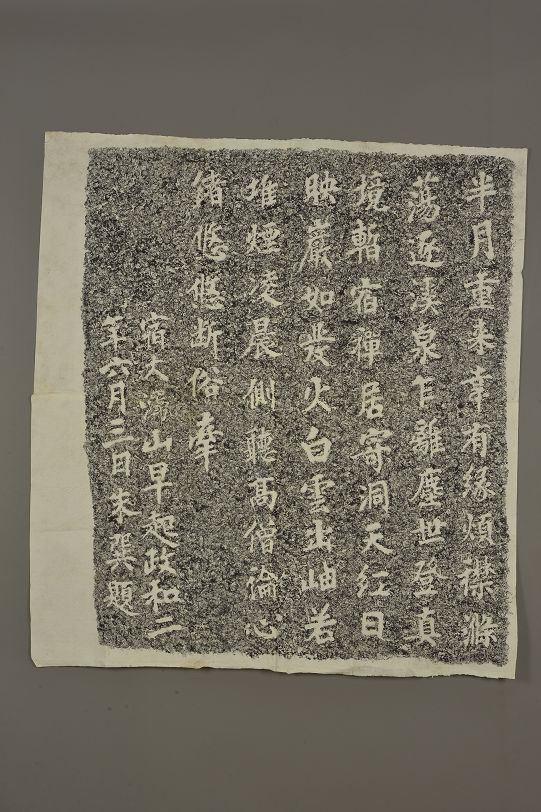 半月重来幸有緣煩襟滌
蕩近溪泉乍離塵世登真
境暫宿禪居寄洞天紅日
映巖如發火白雲出岫若
堆煙凌晨側聽高僧論心
緒悠悠断俗牽
宿大滌山早起政和二
年六月三日朱巽題